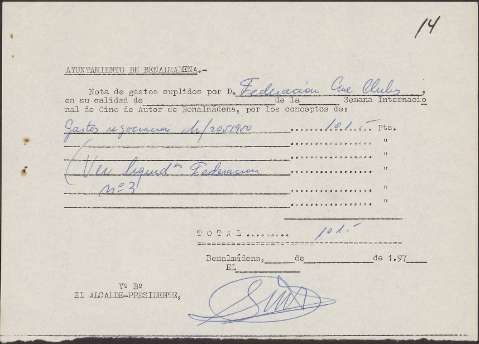 14
AYUNTAMIENTO DE BENALMADENA.-
Nota de gastos suplidos por D. Federación Cine Clubs,
en su calidad de de la Semana Internacio
nal de Cine de Autor de Benalmádena, por los conceptos de:
Gastos 101.- Pts.
"
(Ver liquidón Federacion "
nº 3 "
"
T O T A L ........ 101.-
Benalmádena, de de 1.97
El
Vº Bº
El ALCALDE-PRESIDENTE,